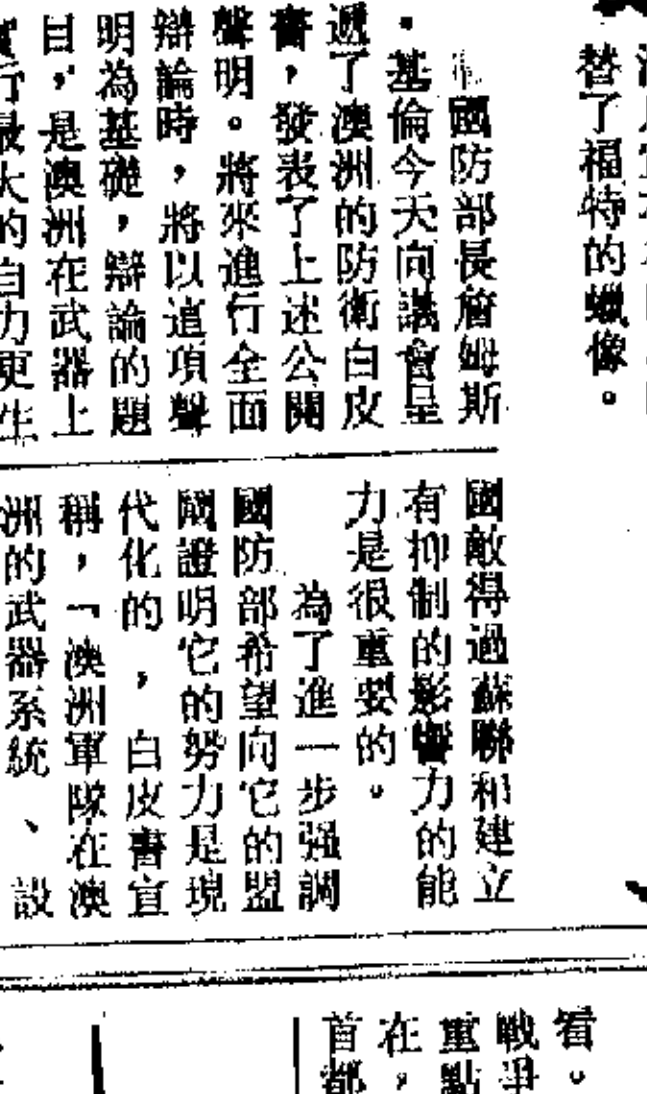 替了福特的蠟像。
國防部長詹姆斯
・基倫今天向議會呈
遞了澳洲的防衛白皮
書,發表了上述公開
聲明。將來進行全面
辯論時,將以這項聲
明為基礎,辯論的題
目,是澳洲在武器上
行最大的自力更生
國敵得過蘇聯和建立
有抑制的影響力的能
力是很重要的。
為了進一步强調
國防部希望向它的盟
國證明它的努力是現
代化的,白皮書宣
稱,「澳洲軍隊在澳
洲的武器系統、設
看。
戰爭
重點
在,
首都